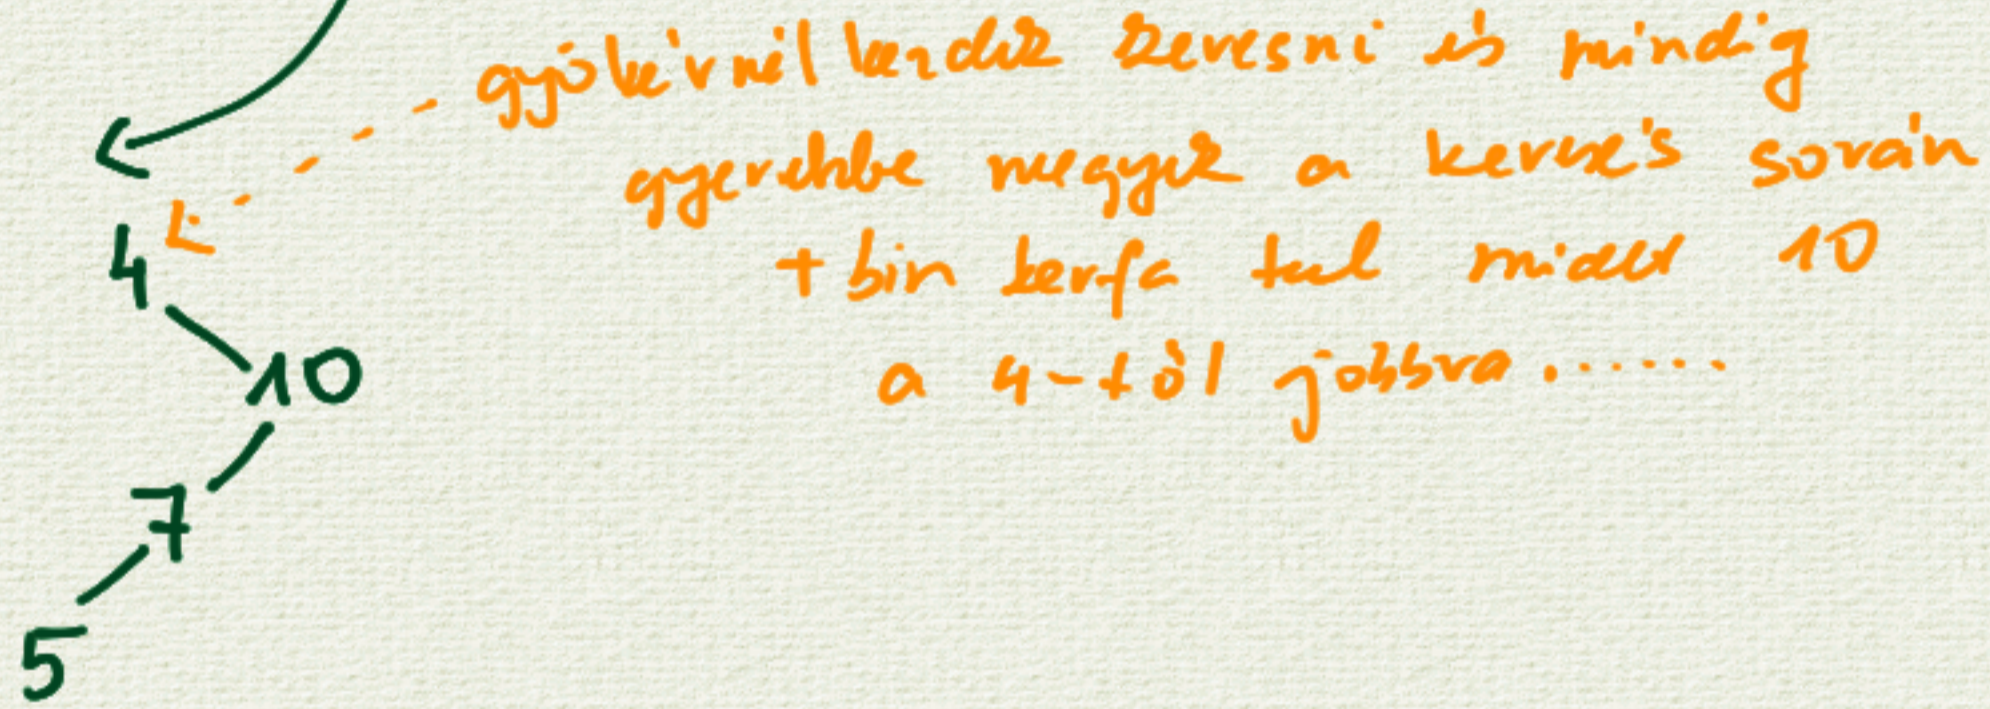 gyökérnél kezdek keresni és mindig
gyerekbe megyek a keresés során
+ bin kerfa tul miatt 10
a 4-től jobbra.......
4
10
7
5